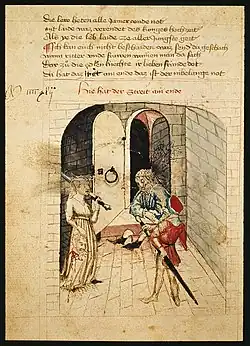 Die lewt heten alle Jamer vnde not
mit laid was verendet des kunges hochzeit
Als ye die lieb leide ze aller Jungste geit
Ich kan euch nicht beschaiden was seyd da geschach
wann ritter vnde frawen wainen man da sach
Dar zu die edlen knechte ir lieben frewnde dot
Da hat das liet ain ende das ist der nibelunge not
Hie hat der streit ain ende